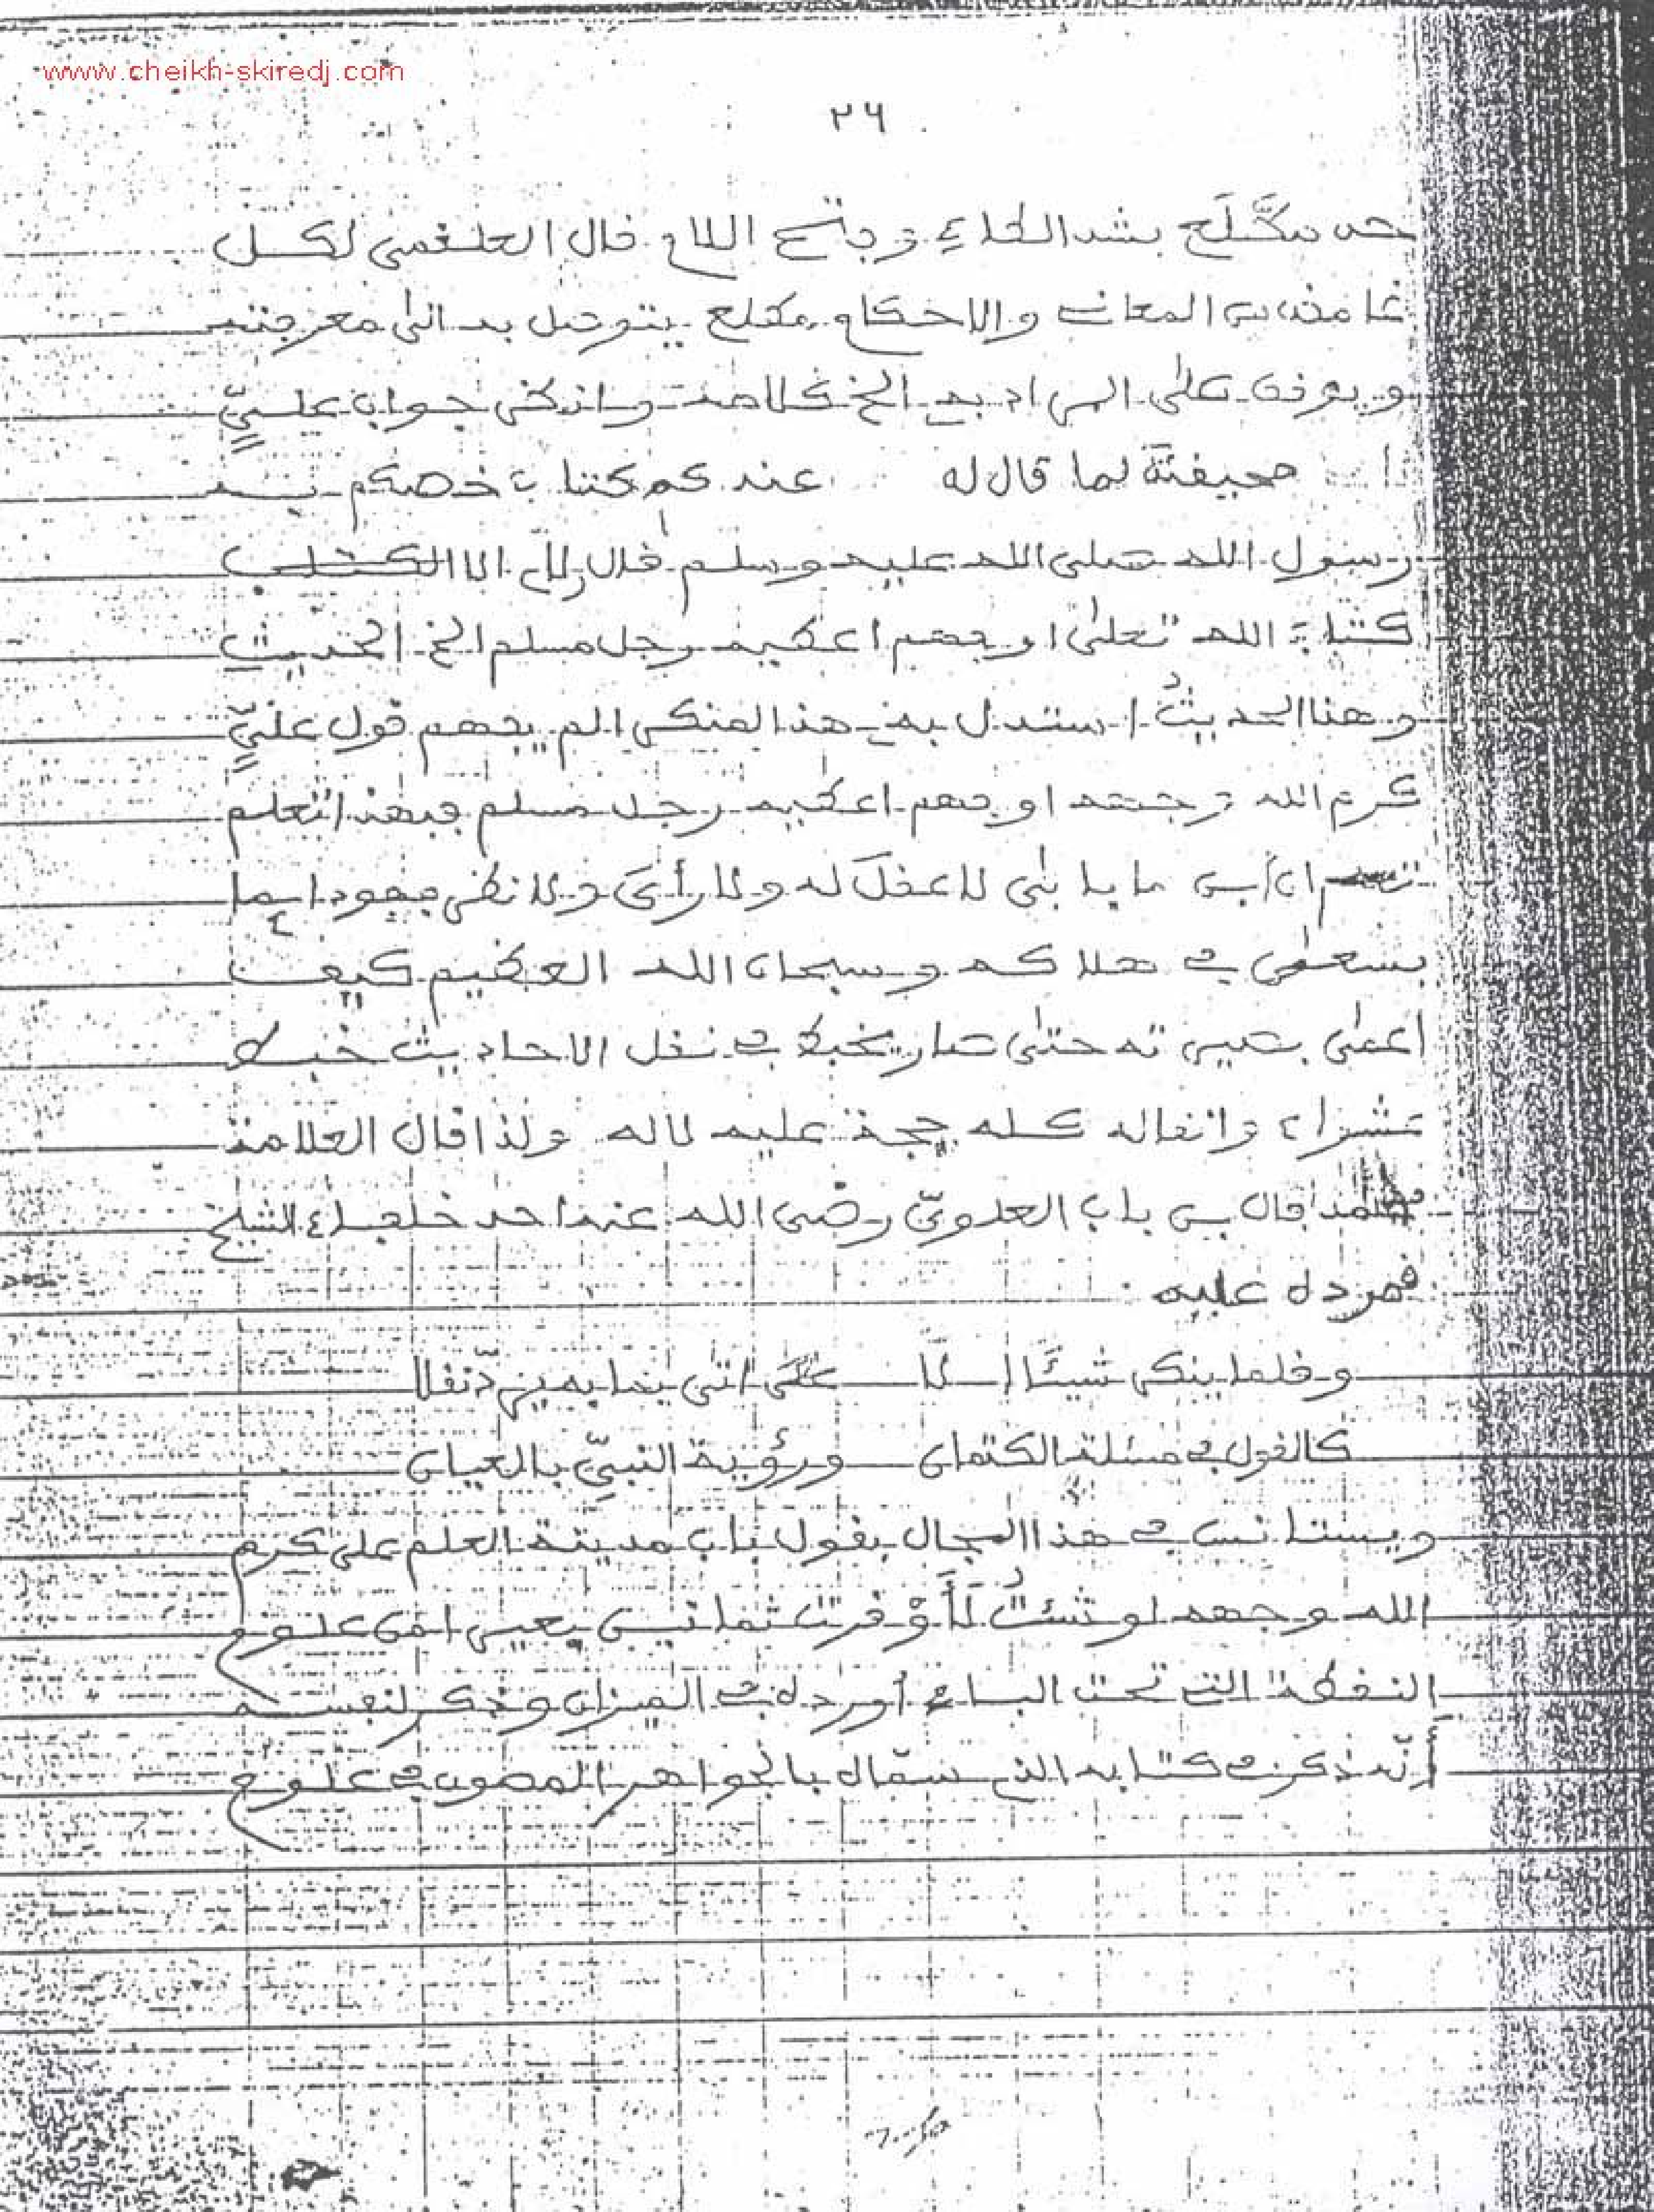 www.cheikh-skiredj.com
٢٦
حد مطَّلَع بشد الطاء وفتح اللام قال العلقمي لكل
غامض من المعاني والاحكام مطلع يتوصل به الى معرفته
ويوقف على المراد به الخ كلامه وانظر جواب عليّ
صحيفة لما قال له عندكم كتاب خصكم به
رسول الله صلى الله عليه وسلم قال لا الا
كتاب الله تعلى او فهم اعطيه رجل مسلم الخ الحديث
وهذا الحديث استدل به هذا المنكر الم يفهم قول عليّ
كرم الله وجهه او فهم اعطيه رجل مسلم فبهذا تعلم
ان ابن مايابى لا عقل له ولا رأى ولا نظر فهو دايما
يسعى في هلاكه وسبحان الله العظيم كيف
اعمى بصيرته حتى صار يخبط في نقل الاحاديث خبط
عشواء وانقاله كله حجة عليه لا له ولذا قال العلامة
محمذا فال بن باب العلوي رضي الله عنه احد خلفاء الشيخ
في رده عليه
وقلما ينكر شيئا الا على التى بها يدين نقلا
كالقول في مسئلة الكتمان ورؤية النبيّ بالعيان
ويستانس في هذا المجال بقول باب مدينة العلم على كرم
الله وجهه لو شئتُ لَأَوْقرت ثمانين بعيرا من علوم
النقطة التي تحت الباء أورده في الميزان وذكر لنفسه
أنّه ذكر في كتابه الذي سماه بالجواهر المصون في علوم